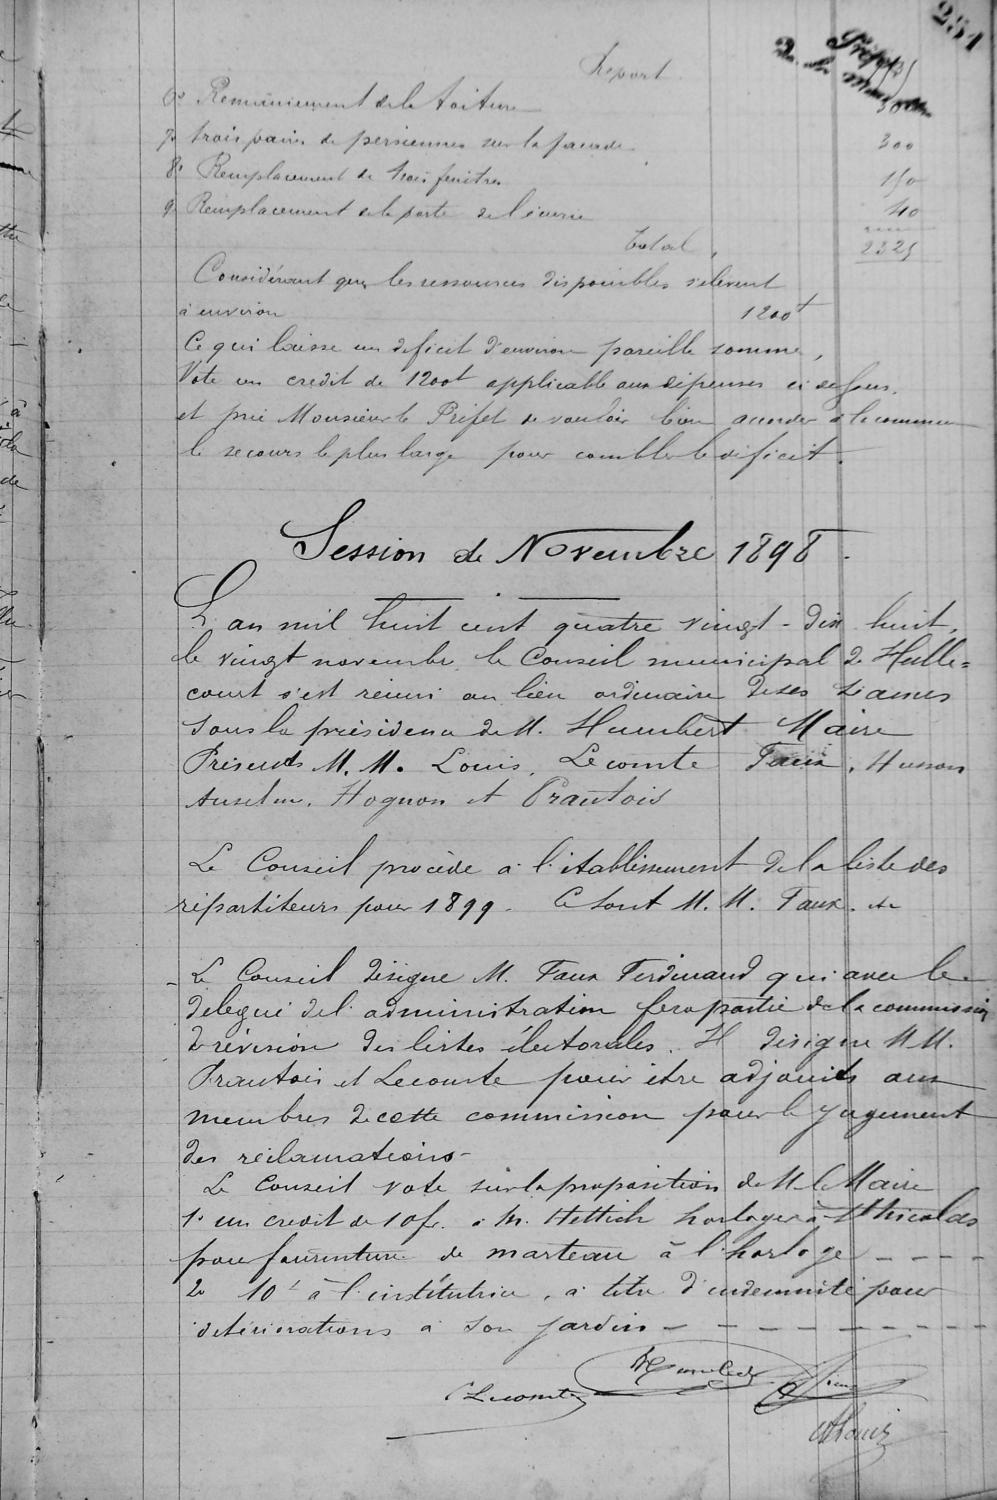 251
Préfre
de la
Report
6° Remaniement de la toiture
7° trois paires de persiennes sur la façade 300
8° Remplacement de trois fenêtres 150
9° Remplacement de la porte de l'écurie 40
Total 2325
Considérant que les ressources disponibles s'élèvent
à environ 1200f
Ce qui laisse un deficit d'environ pareille somme,
Vote un crédit de 1200f applicable aux dépenses ci dessus
et prie Monsieur le Préfet de vouloir bien accorder à la commune
le secours le plus large pour combler le déficit.
Session de Novembre 1898.
L'an mil huit cent quatre vingt-dix huit,
le vingt novembre, le Conseil municipal de Hulle=
court s'est réuni au lieu ordinaire de ses séances
sous la présidence de M. Humbert Maire
Présents M.M. Louis, Lecomte Faux, Husson
Anselme, Hognon et Prautois
Le Conseil procède à l'établissement de la liste des
répartiteurs pour 1899. Ce sont M.M. Faux. etc
Le Conseil désigne M. Faux Ferdinand qui avec le
délégué de l'administration fera partie de la commission
de révision des listes électorales. Il désigne MM.
Prautois et Lecomte pour être adjoints aux
membres de cette commission pour le jugement
des réclamations-
Le Conseil vote sur la proposition de M. le Maire
1° un credit de 10f. à M. Hettich horloger à
pour fourniture de marteau à l'horloge - - - -
2° 10f à l'institutrice, à titre d'indemnité pour
détériorations à son jardin - - - - - - - - -
Lecomte
Louis